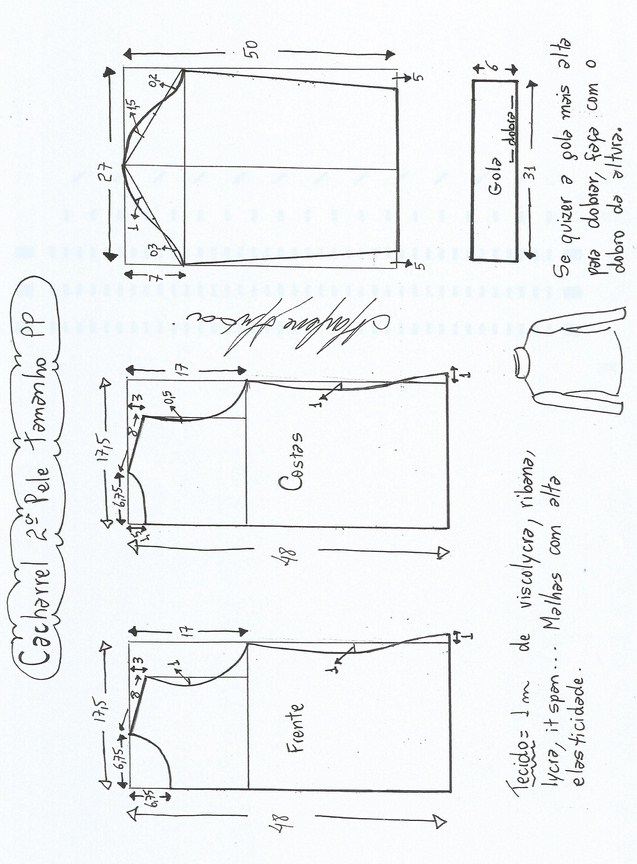 Cacharrel 2ª Pele Tamanho PP
17,5
6,75
8
3
6,75
1
17
Frente
1
48
1
17,5
6,75
8
3
0,5
17
Costas
1
48
1
Marlene Mukai
27
7
1
1,5
0,3
0,2
50
5
5
Tecido = 1 m de viscolycra, ribana,
lycra, it span... Malhas com alta
elasticidade.
6
Gola
dobra
31
Se quizer a gola mais alta
para dobrar, faça com o
dobro da altura.